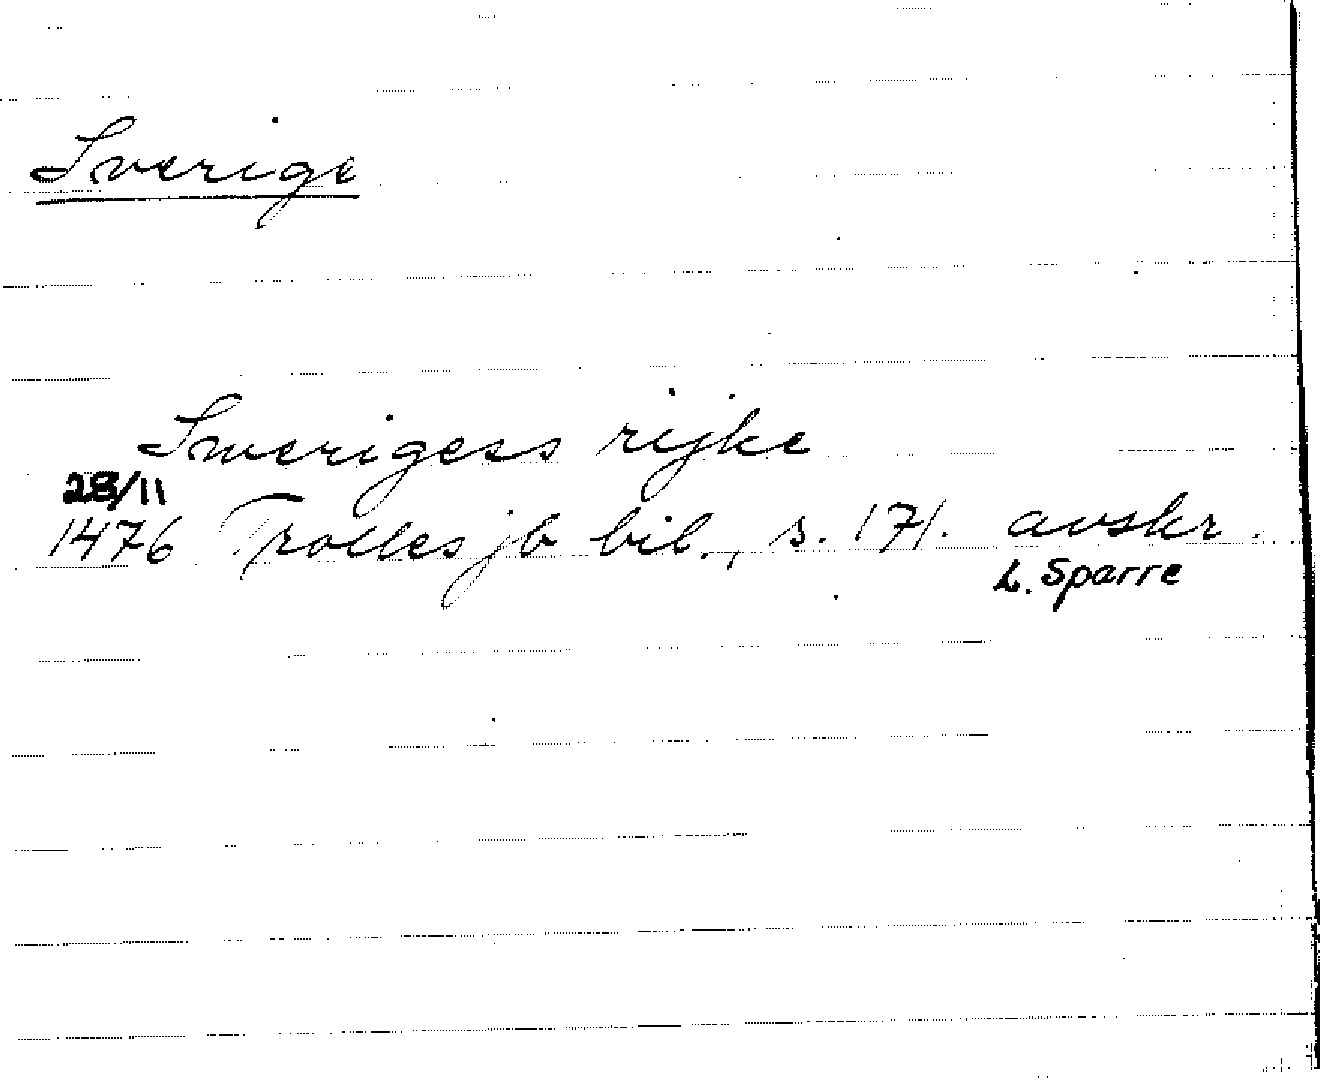 Sverige
Swerigess rijke
28/11
1476 Trolles jb bil., s. 171. avskr.
L. Sparre